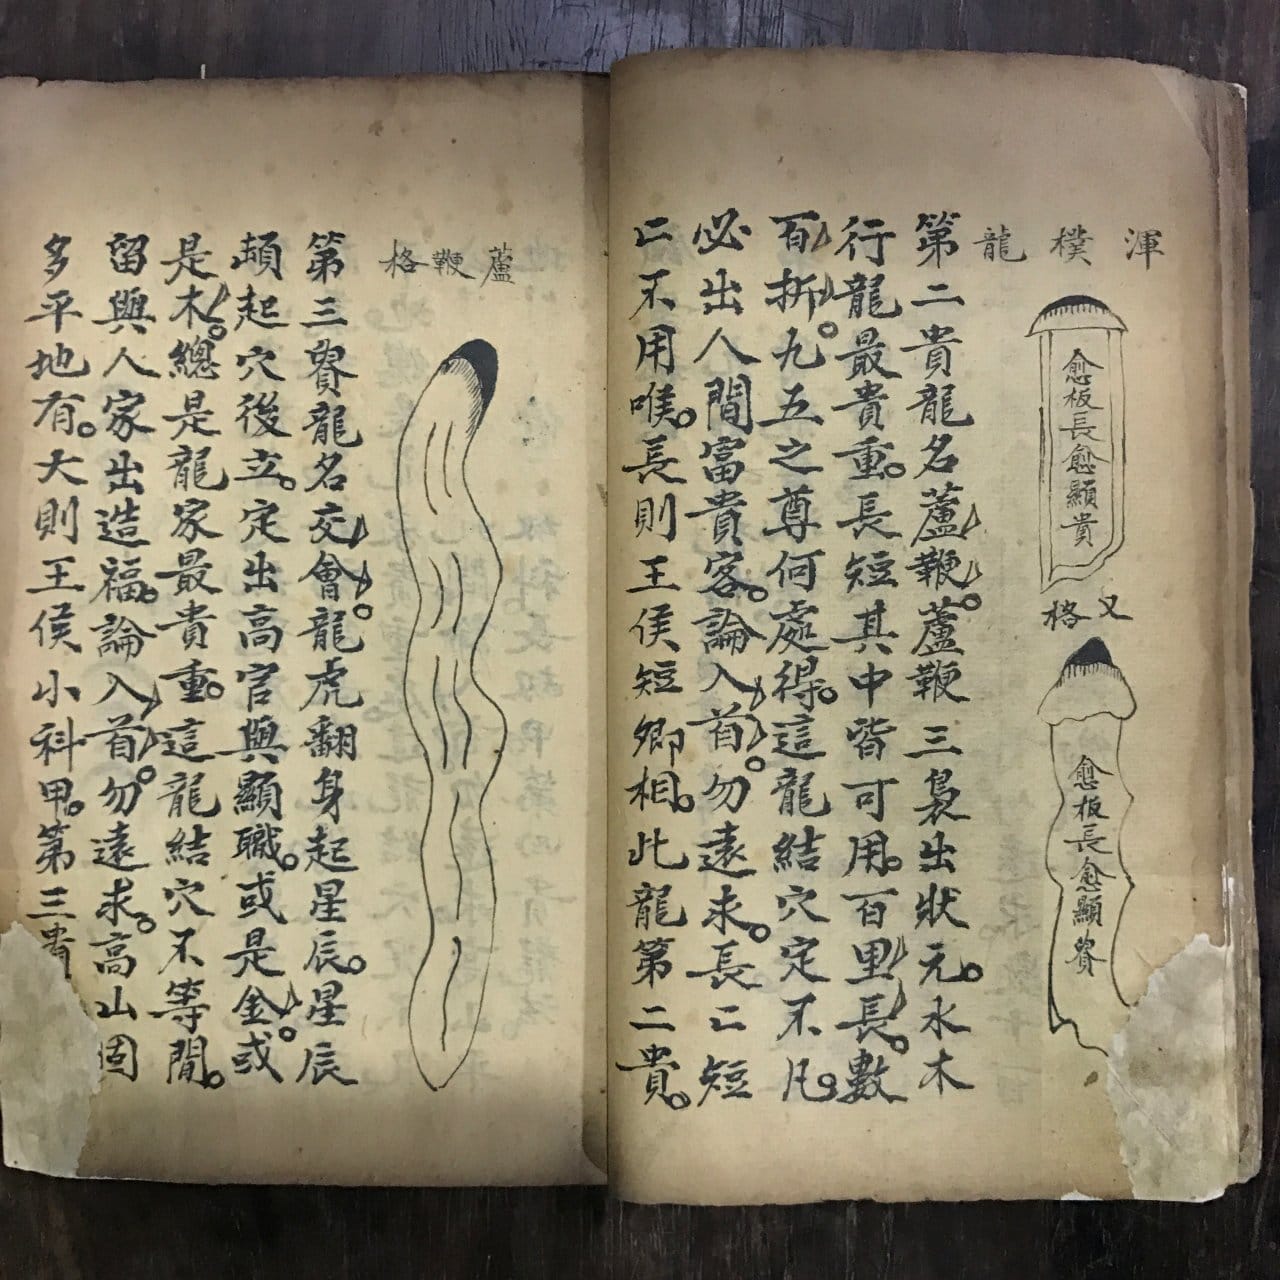 渾樸龍
愈板長愈顯貴
又格
愈板長愈顯貴
第二貴龍名蘆鞭。蘆鞭三裊出狀元。水木
行龍最貴重。長短其中皆可用。百里長。數
百折。九五之尊何處得。這龍結穴定不凡。
必出人間富貴客。論入首。勿遠求。長匕短
匕不用喉。長則王侯短鄉相。此龍第二貴。
蘆鞭格
第三貴龍名交會。龍虎翻身起星辰。星辰
頓起穴後立。定出高官與顯職。或是金。或
是木。總是龍家最貴重。這龍結穴不等閒。
留與人家出造福。論入首。勿遠求。高山固
多平地有。大則王侯小科甲。第三貴